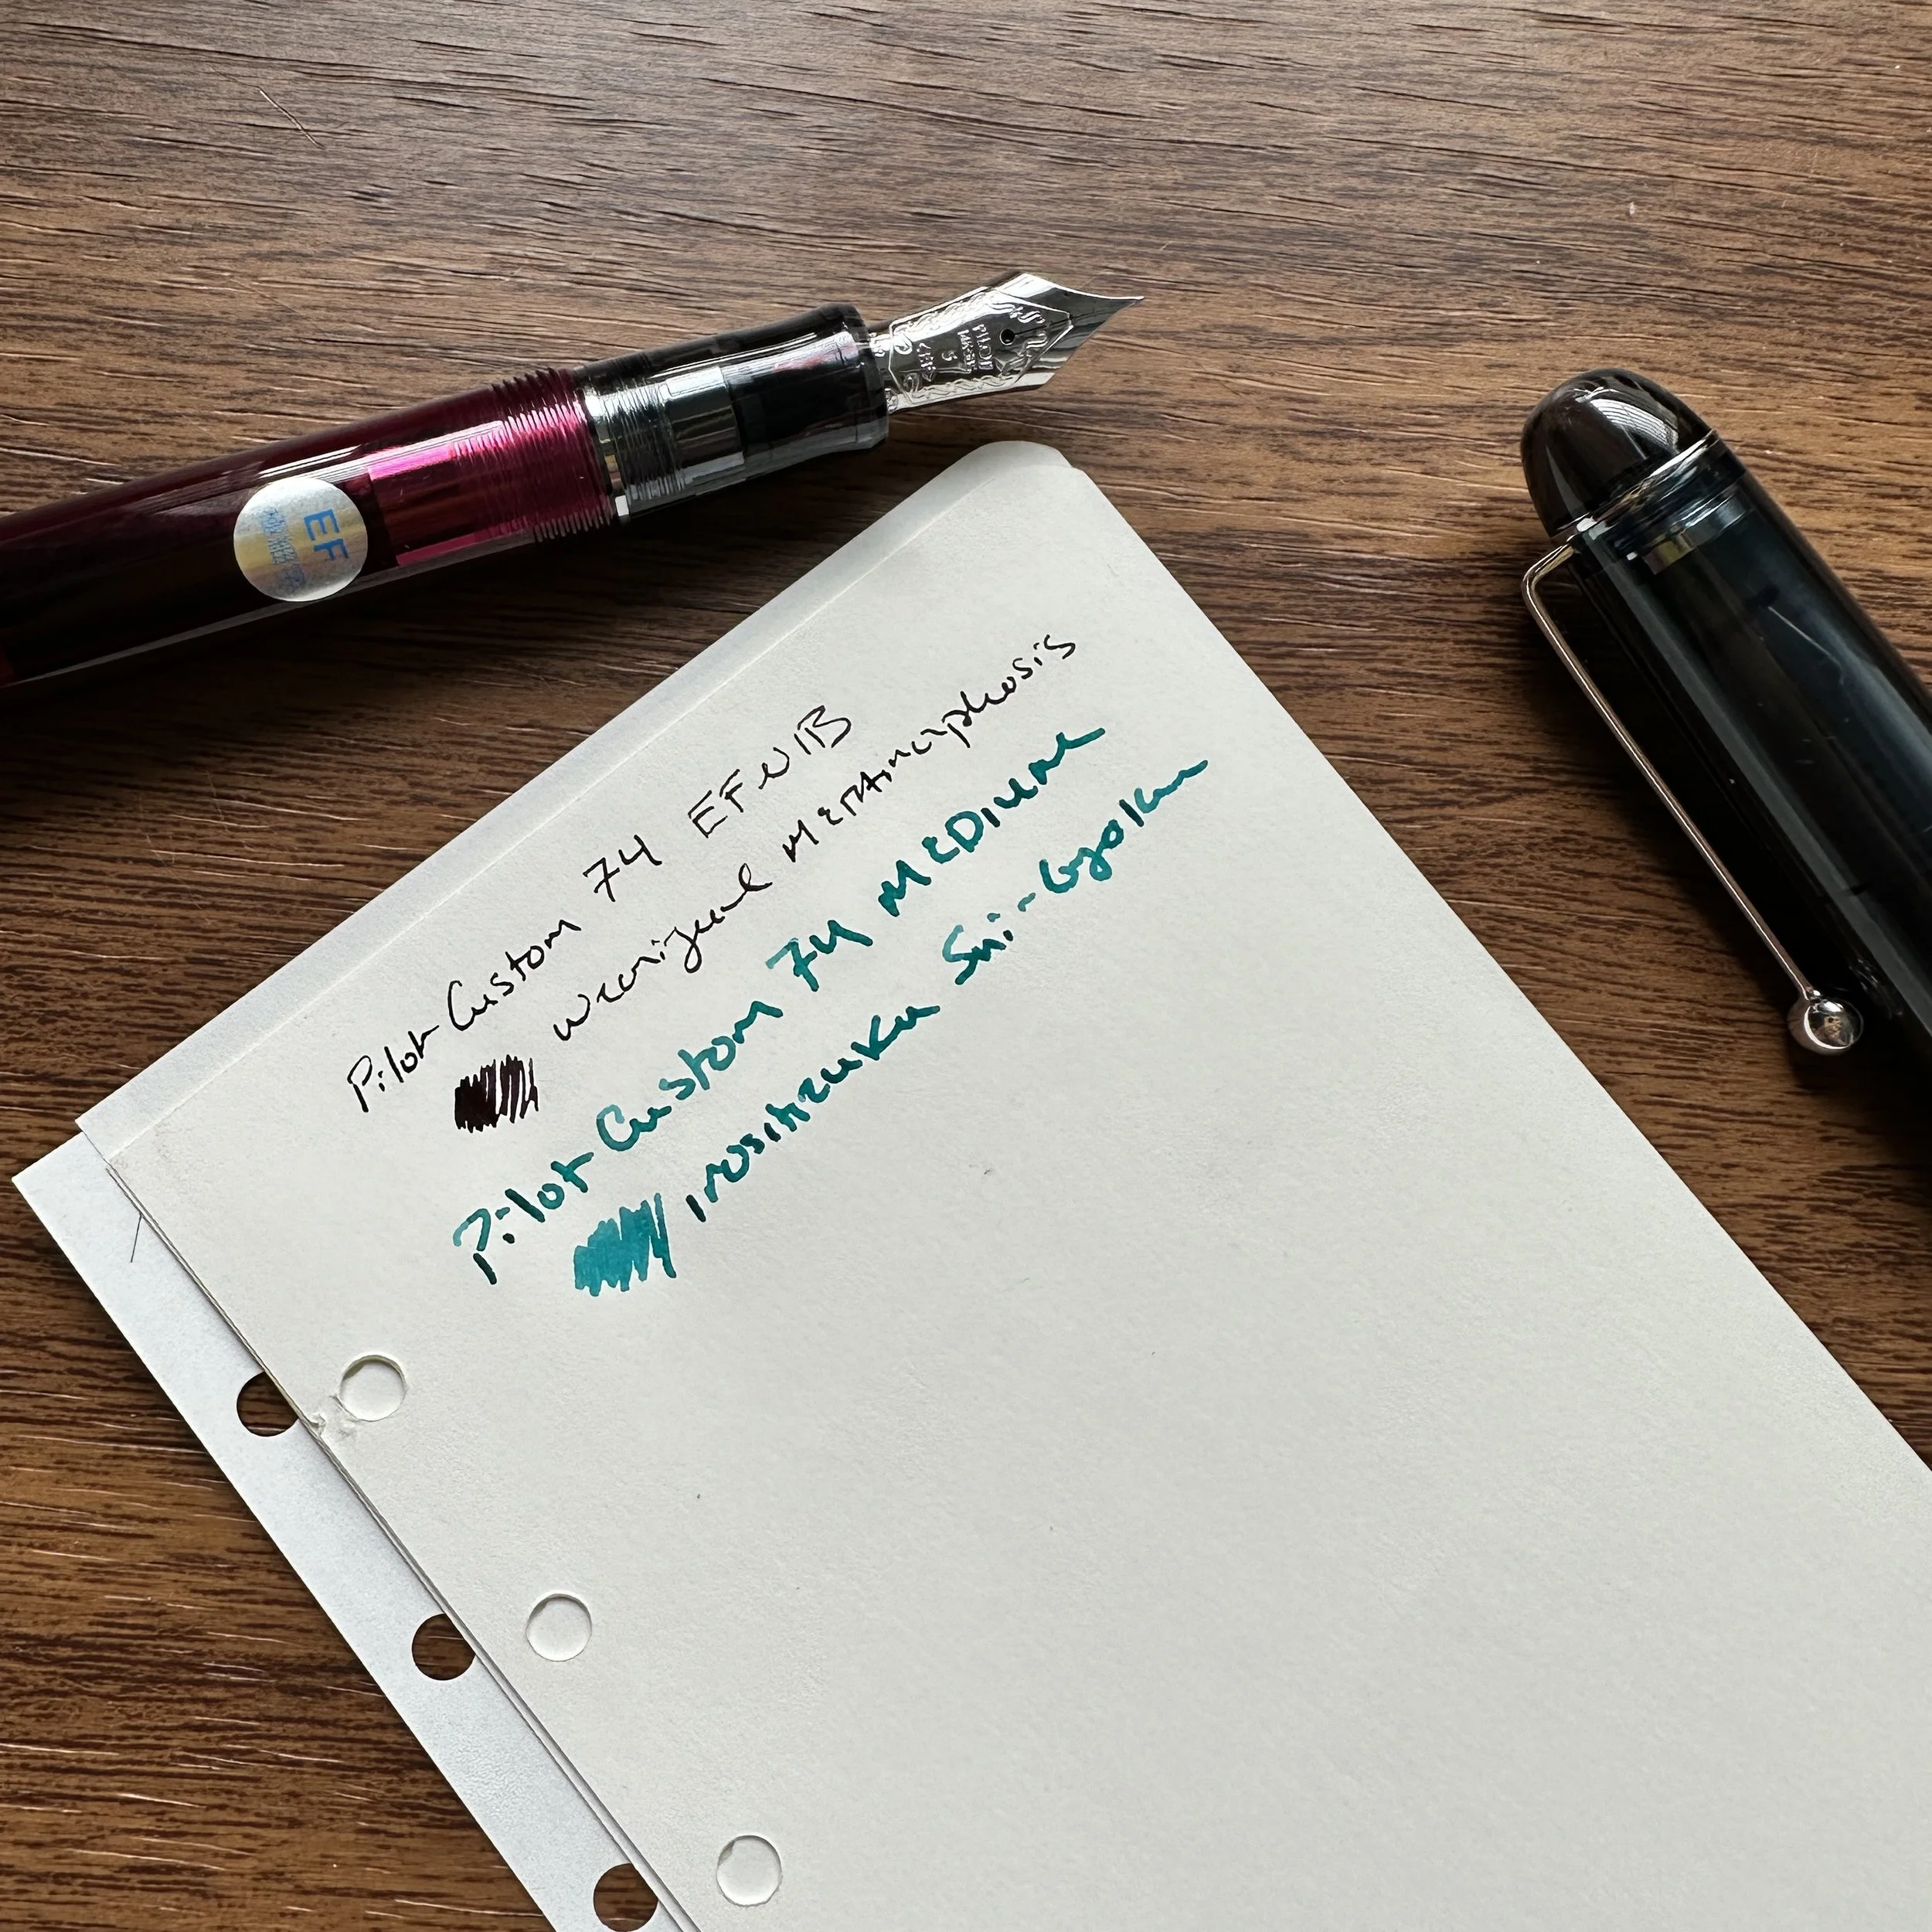 EF
PILOT
5
Pilot Custom 74 EF NIB
Wearingeul Metamorphosis
Pilot Custom 74 MEDIUM
Iroshizuku Sui-Gyoku